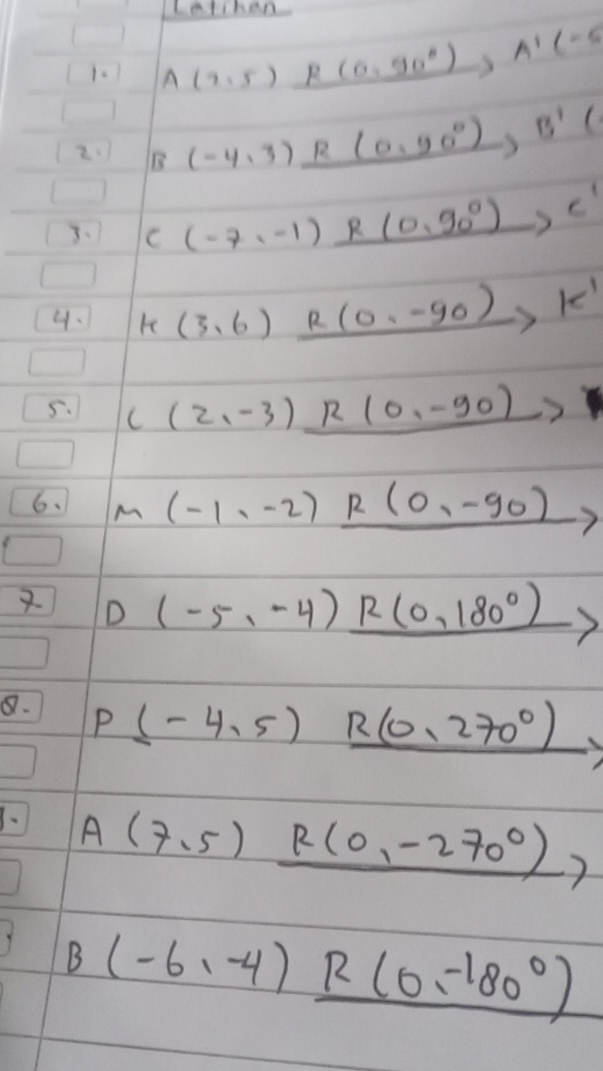 Latihan
1. A (7,5) R (0,90°) > A' (-5
2. B (-4,3) R (0,90°) > B' (
3. C (-7,-1) R (0,90°) > C'
4. K (3,6) R (0,-90) > K'
5. L (2,-3) R (0,-90) >
6. M (-1,-2) R (0,-90) >
7. D (-5,-4) R (0,180°) >
8. P (-4,5) R (0,270°) >
9. A (7,5) R (0,-270°) >
B (-6,-4) R (0,-180°)